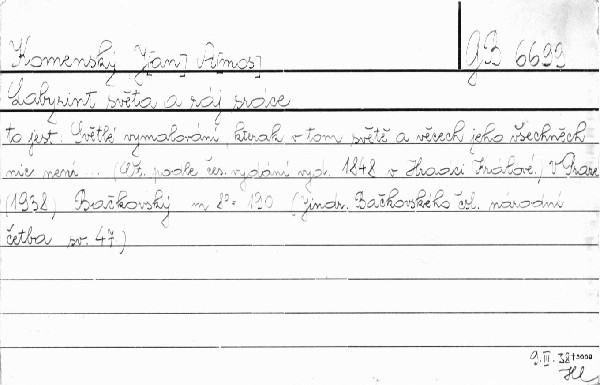 Komenský J[an] A[mos]
GB 6699
Labyrint světa a ráj srdce
to jest: Světlé vymalování, kterak v tom světě a věcech jeho všechněch
nic není ... (Ot. podle čes. vydání vyd. 1848 v Hradci Králové.) V Praze
(1938) Bačkovský m 8° 190 (Jindr. Bačkovského čsl. národní
četba sv. 47)
9. III. 38